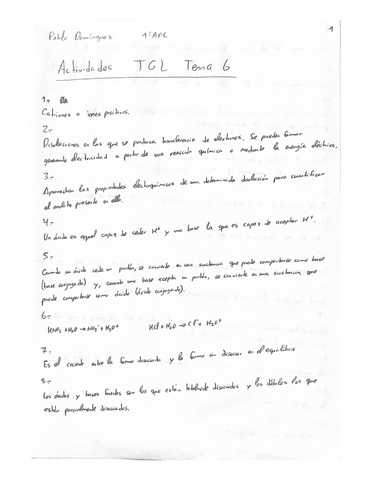 1
Pablo Domínguez 1ºAPC
Actividades TGL Tema 6
1.-
Cationes o iones positivos.
2.-
Disoluciones en las que se produce transferencia de electrones. Se pueden formar
generando electricidad a partir de una reacción química o mediante la energía eléctrica.
3.-
Aprovechan las propiedades electroquímicas de una determinada disolución para cuantificar
el analito presente en ella.
4.-
Un ácido es aquel capaz de ceder H+ y una base la que es capaz de aceptar H+.
5.-
Cuando un ácido cede un protón, se convierte en una sustancia que puede comportarse como base
(base conjugada) y, cuando una base acepta un protón, se convierte en una sustancia que
puede comportarse como ácido (ácido conjugado).
6.-
HNO3 + H2O → NO3- + H3O+ HCl + H2O → Cl- + H3O+
7.-
Es el cociente entre la forma disociada y la forma sin disociar en el equilibrio
8.-
Los ácidos y bases fuertes son los que están totalmente disociados y los débiles los que
están parcialmente disociados.